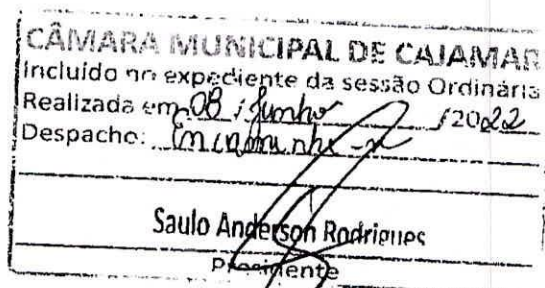 CÂMARA MUNICIPAL DE CAJAMAR
Incluído no expediente da sessão Ordinária
Realizada em 08 / Junho / 2022
Despacho: Encaminhe-se
Saulo Anderson Rodrigues
Presidente